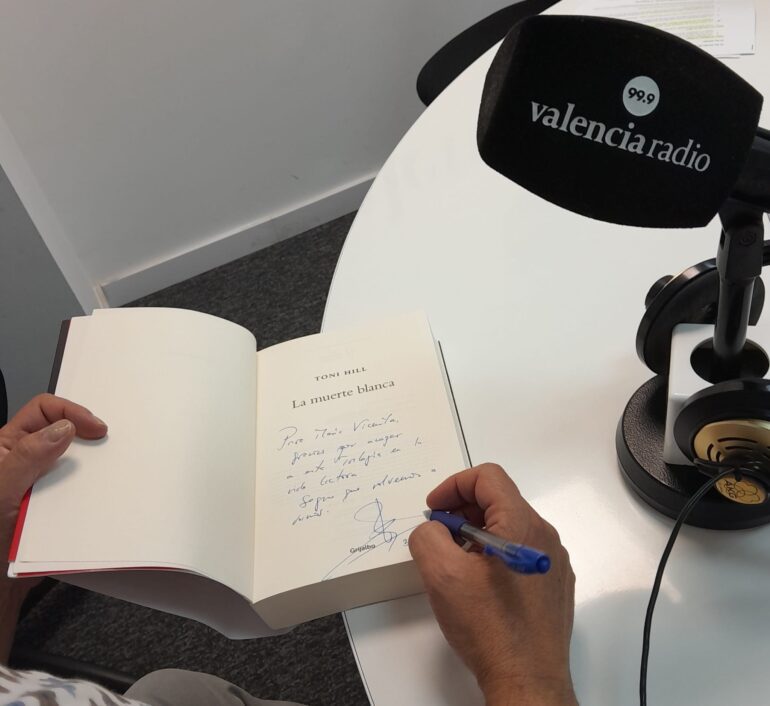 99.9
valencia radio
TONI HILL
La muerte blanca
Para María Vicenta,
gracias por acoger
a este Trilogía en tu
vida lectora.
Seguro que volvemos a
vernos.
Grijalbo
AKG